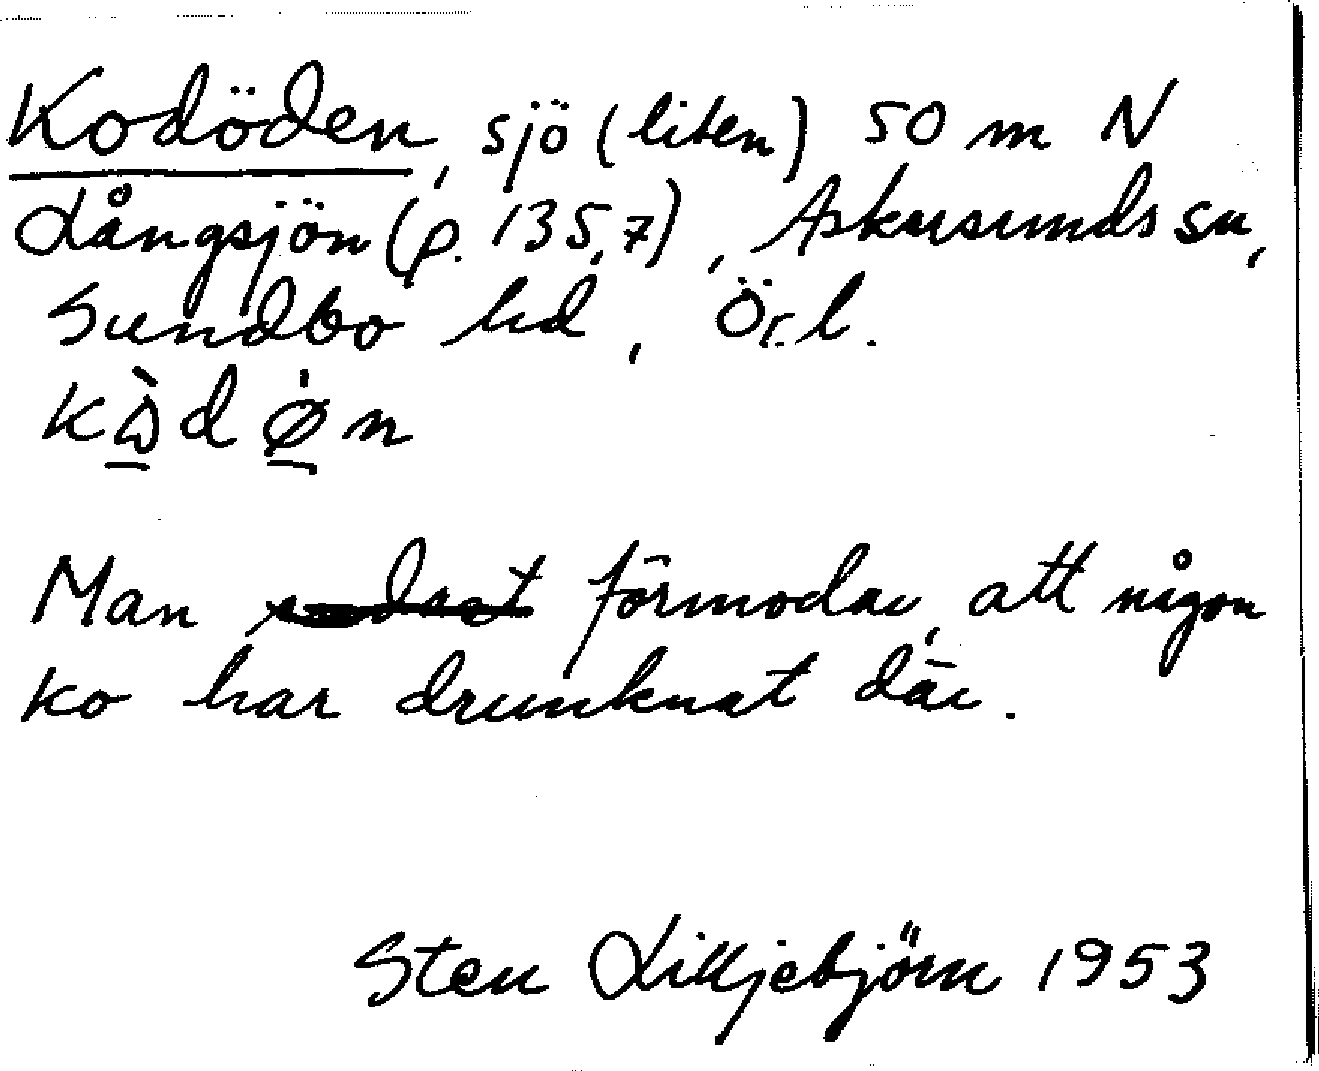 Kodöden, sjö (liten) 50 m N
Långsjön (p. 135,7), Askersunds sn,
Sundbo hd, Ör.l.
Man förmodar, att någon
ko har drunknat där.
Sten Lilljebjörn 1953